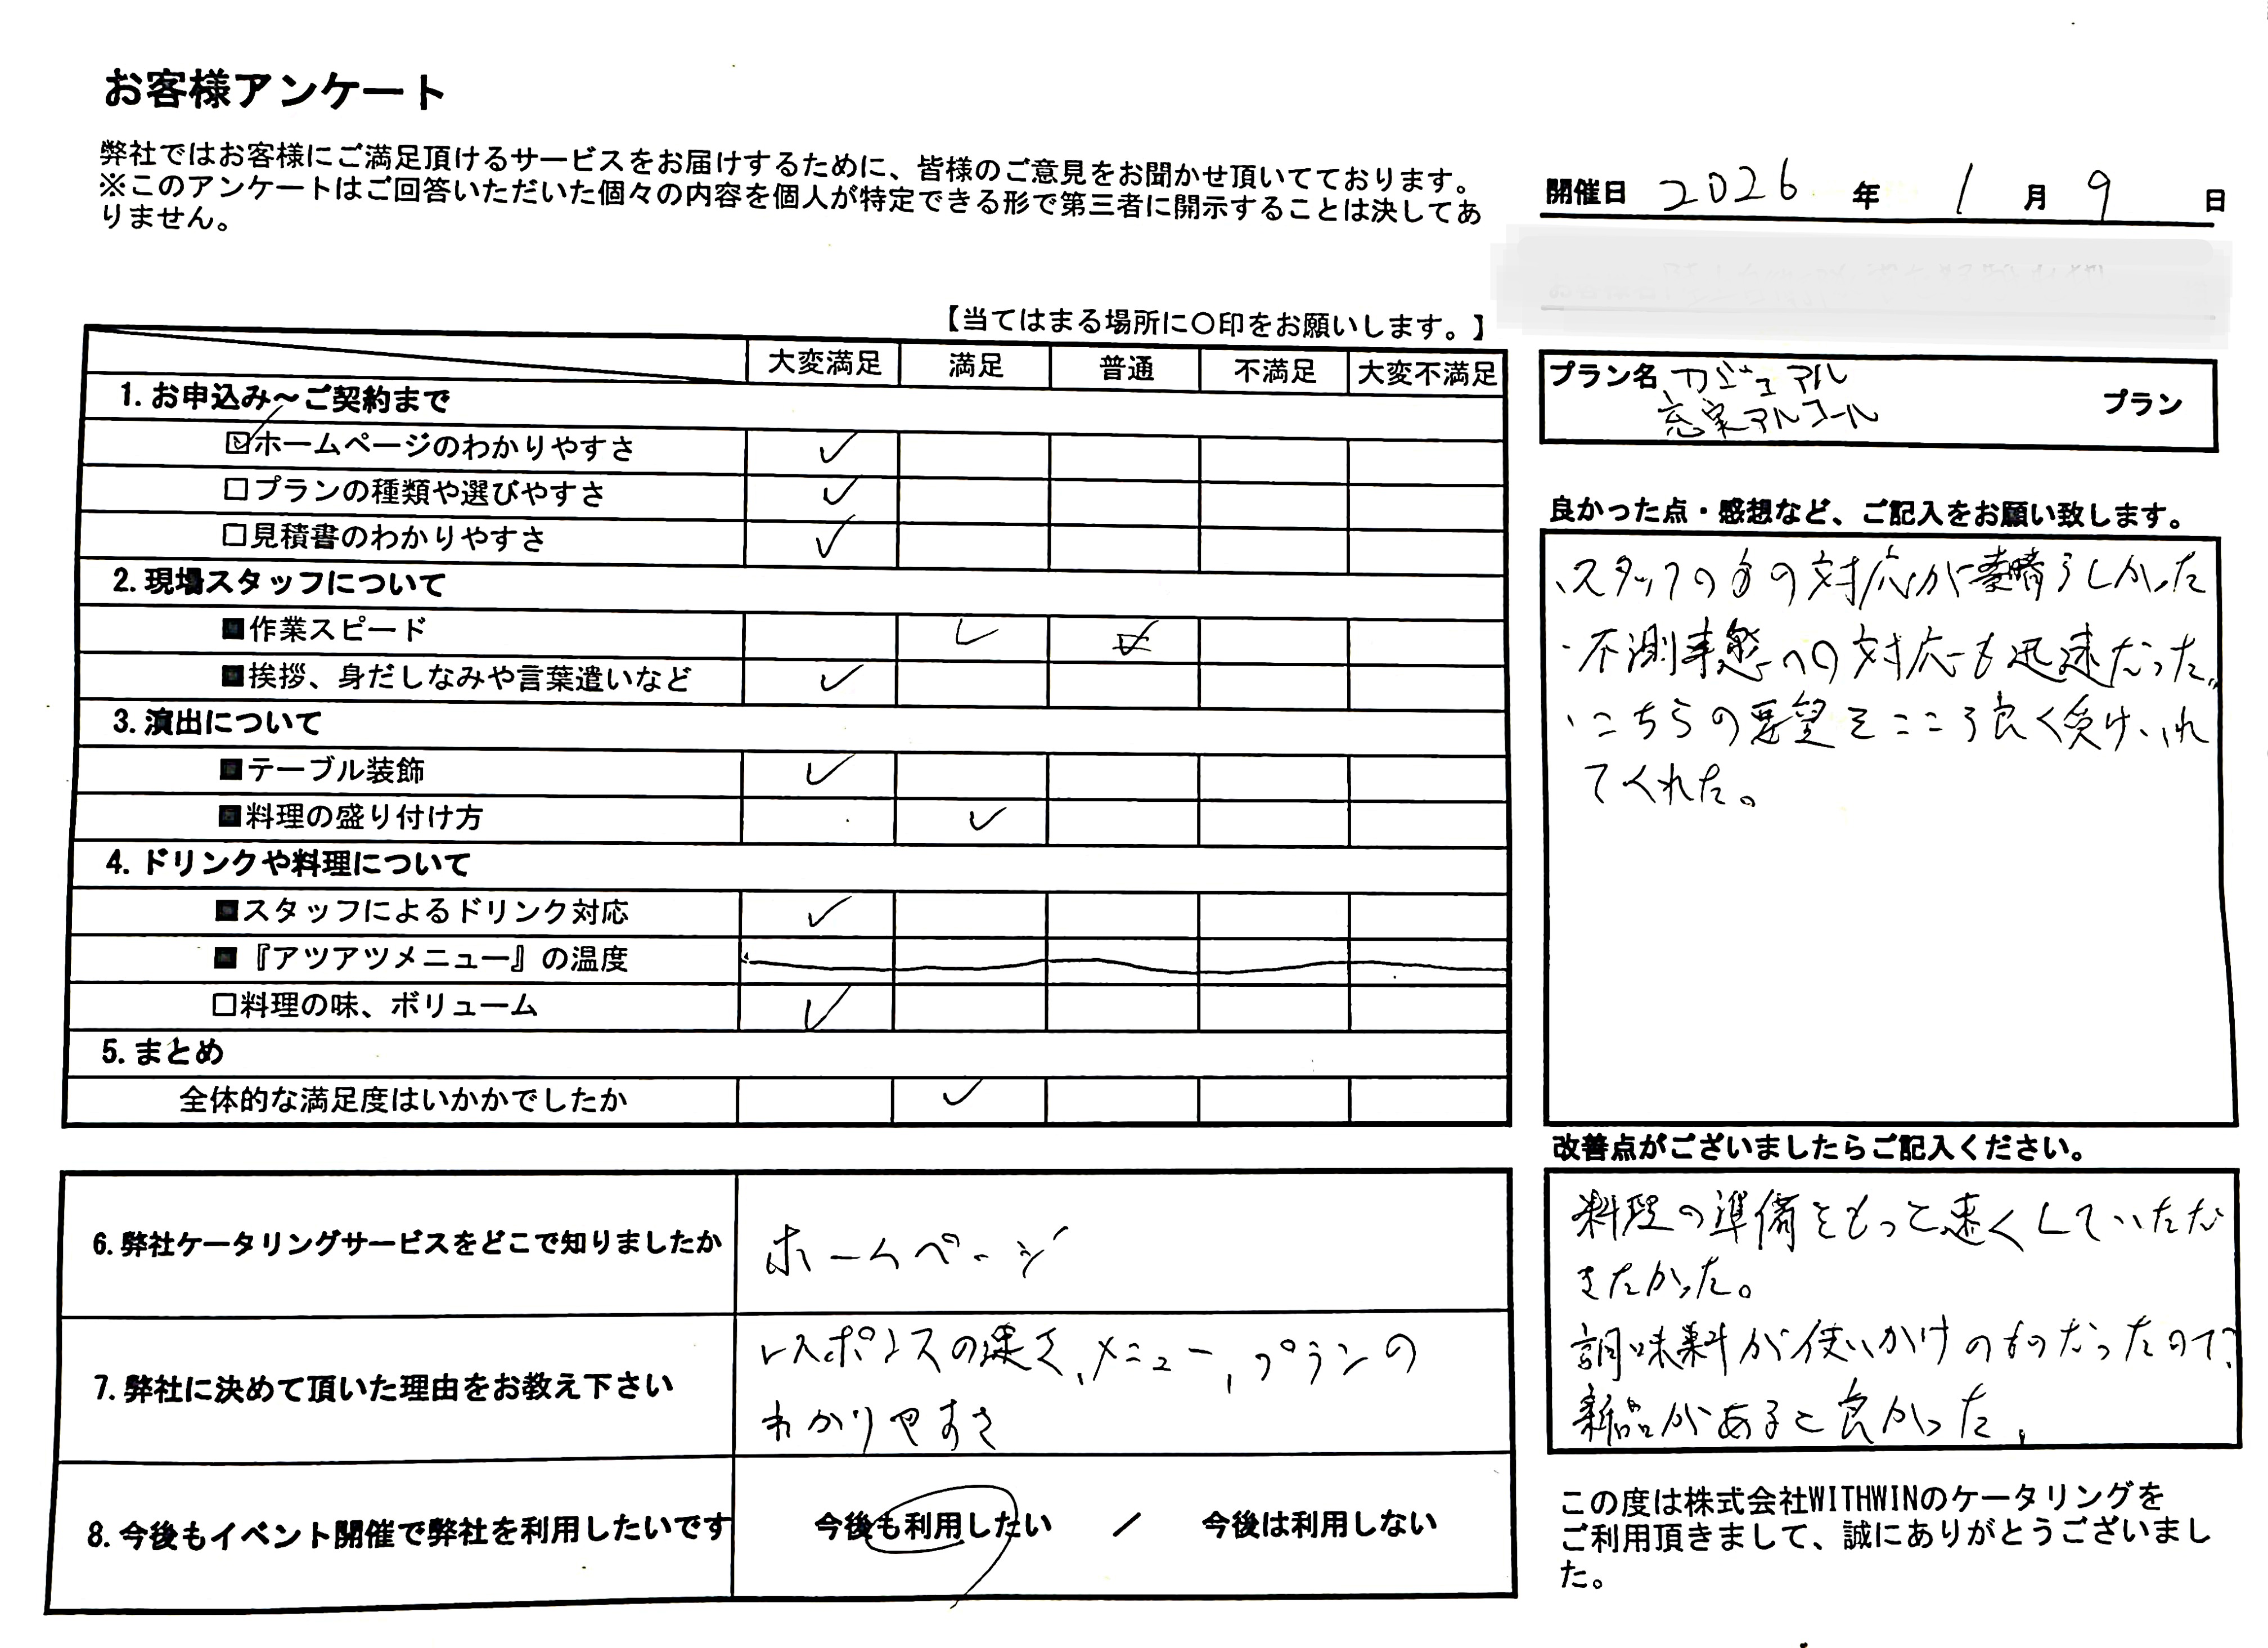 お客様アンケート
弊社ではお客様にご満足頂けるサービスをお届けするために、皆様のご意見をお聞かせ頂いてております。
※このアンケートはご回答いただいた個々の内容を個人が特定できる形で第三者に開示することは決してあ
りません。
開催日 2026 年 1 月 9 日
【当てはまる場所に〇印をお願いします。】
大変満足 満足 普通 不満足 大変不満足
1. お申込み～ご契約まで
☑ホームページのわかりやすさ ✓
□プランの種類や選びやすさ ✓
□見積書のわかりやすさ ✓
2. 現場スタッフについて
■作業スピード ✓
■挨拶、身だしなみや言葉遣いなど ✓
3. 演出について
■テーブル装飾 ✓
■料理の盛り付け方 ✓
4. ドリンクや料理について
■スタッフによるドリンク対応 ✓
■『アツアツメニュー』の温度
□料理の味、ボリューム ✓
5. まとめ
全体的な満足度はいかかでしたか ✓
6. 弊社ケータリングサービスをどこで知りましたか
ホームページ
7. 弊社に決めて頂いた理由をお教え下さい
レスポンスの速さ、メニュー、プランの
わかりやすさ
8. 今後もイベント開催で弊社を利用したいです
今後も利用したい / 今後は利用しない
プラン名 カジュアル
充実アルコール
プラン
良かった点・感想など、ご記入をお願い致します。
・スタッフの方の対応が素晴らしかった
・不測事態への対応も迅速だった。
・こちらの要望をこころ良く受けいれ
てくれた。
改善点がございましたらご記入ください。
料理の準備をもっと速くしていただ
きたかった。
調味料が使いかけのものだったので
新品があると良かった。
この度は株式会社WITHWINのケータリングを
ご利用頂きまして、誠にありがとうございまし
た。